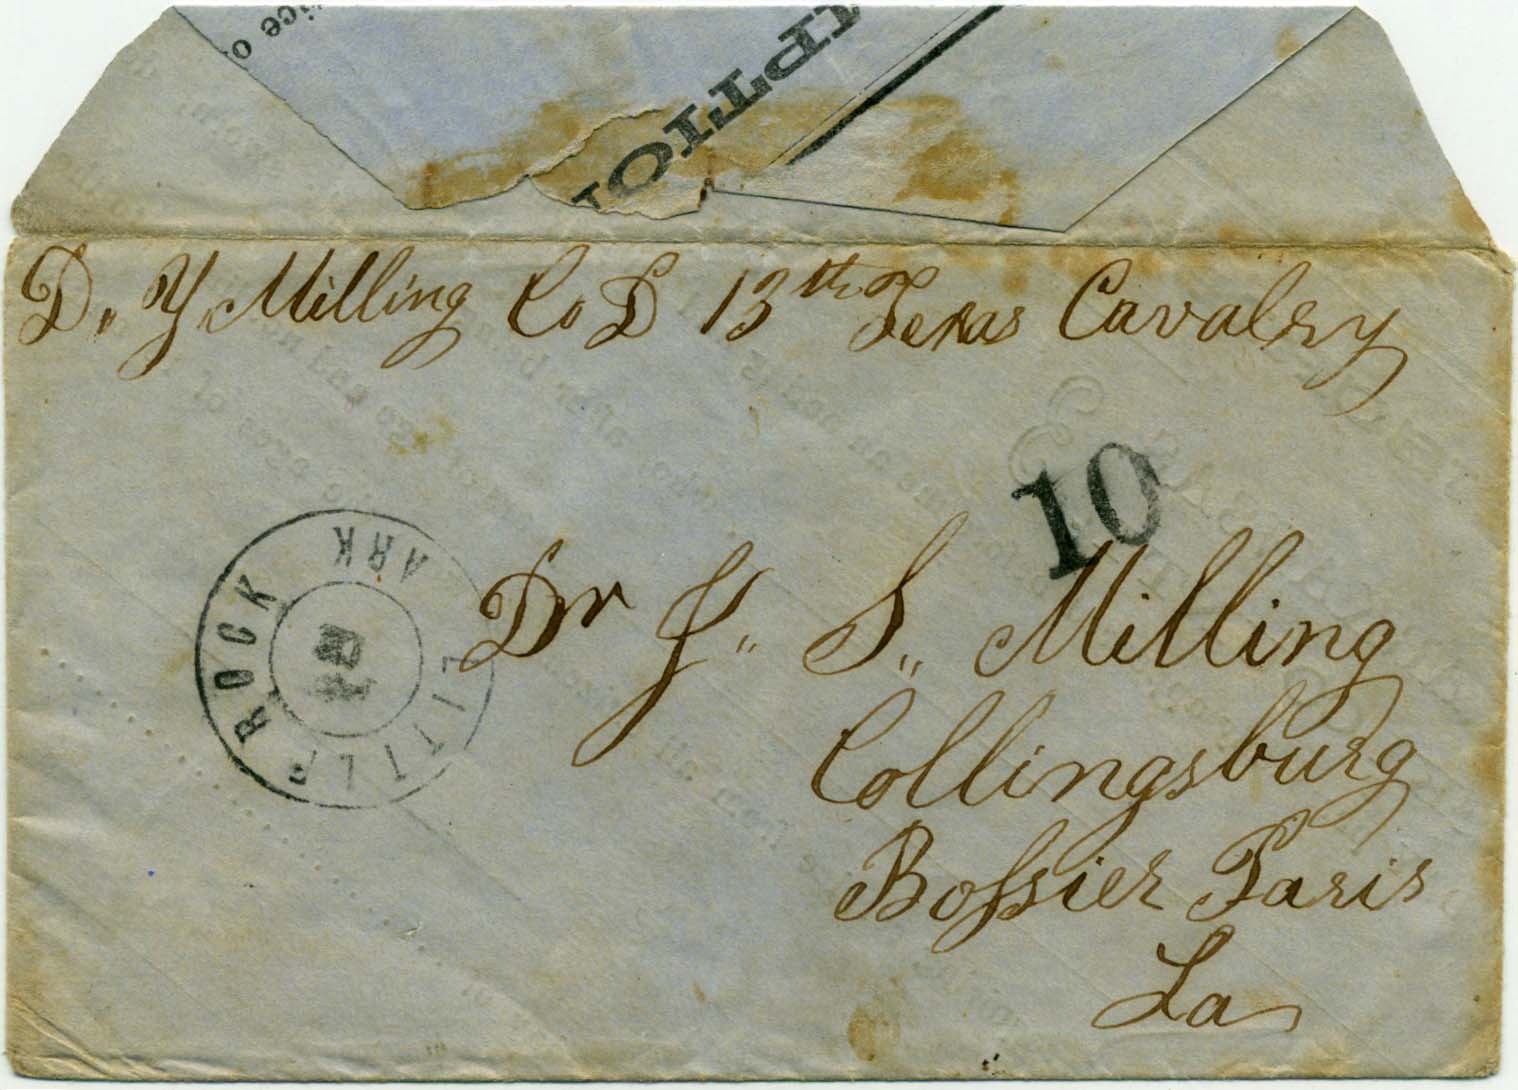 ice o
PTIO
D. Y. Milling Co D 13th Texas Cavalry
10
LITTLE ROCK ARK
Dr J. S. Milling
Collingsburg
Bossier Paris
La